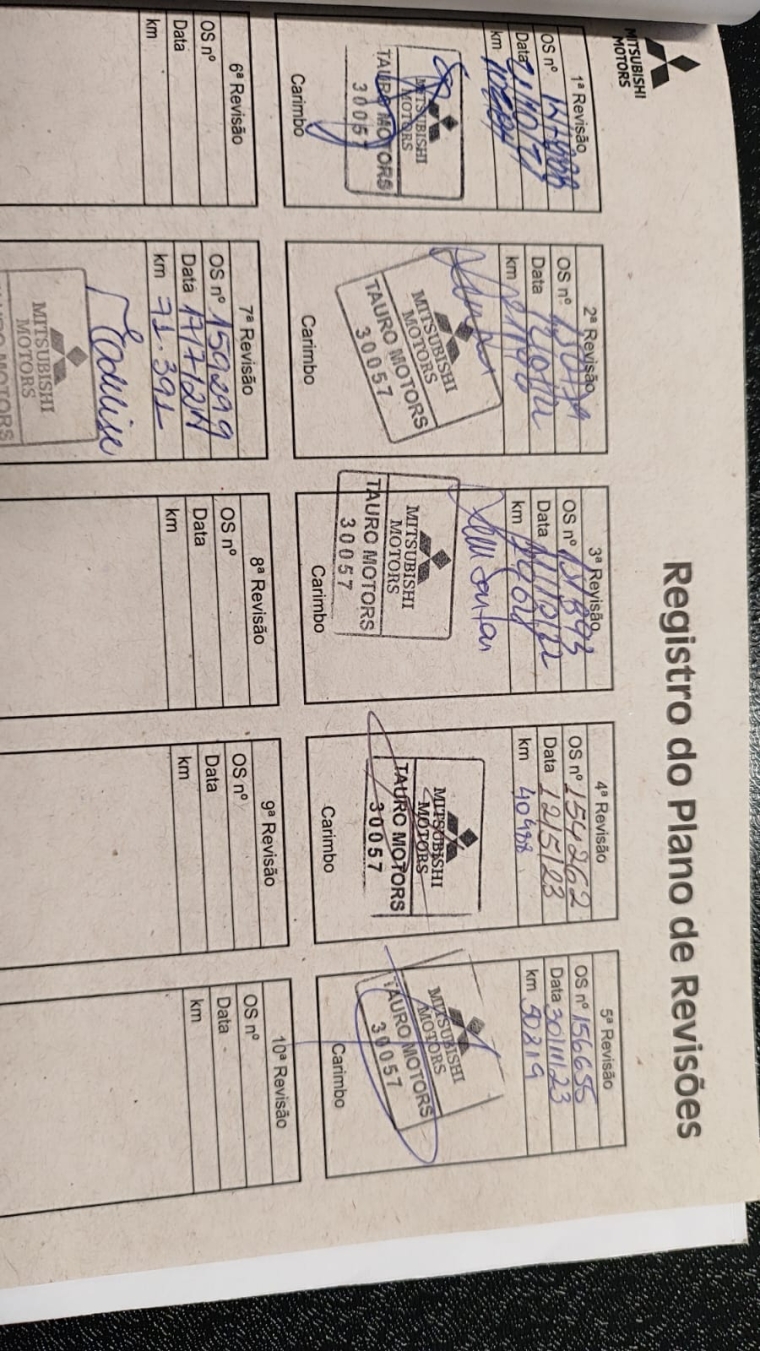 MITSUBISHI
MOTORS
Registro do Plano de Revisões
1ª Revisão
OS nº
Data
km
MITSUBISHI
MOTORS
TAURO MOTORS
30057
Carimbo
2ª Revisão
OS nº
Data
km
MITSUBISHI
MOTORS
TAURO MOTORS
30057
Carimbo
3ª Revisão
OS nº 151893
Data
km
MITSUBISHI
MOTORS
TAURO MOTORS
30057
Carimbo
4ª Revisão
OS nº 154262
Data 12/5/23
km 40988
MITSUBISHI
MOTORS
TAURO MOTORS
30057
Carimbo
5ª Revisão
OS nº 156655
Data 30/11/23
km 50819
MITSUBISHI
MOTORS
TAURO MOTORS
30057
Carimbo
6ª Revisão
OS nº
Data
km
7ª Revisão
OS nº 159299
Data 17/7/24
km 71.391
MITSUBISHI
MOTORS
TAURO MOTORS
8ª Revisão
OS nº
Data
km
9ª Revisão
OS nº
Data
km
10ª Revisão
OS nº
Data
km